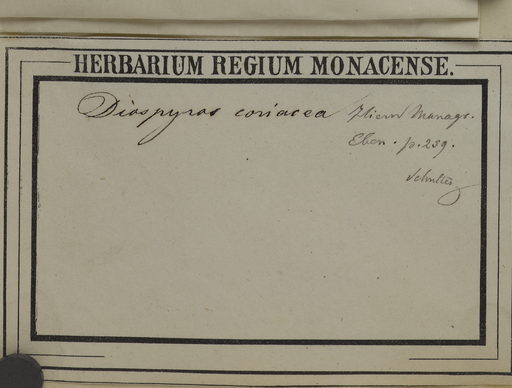 HERBARIUM REGIUM MONACENSE.
Diospyros coriacea Hiern Monogr.
Eben. p. 239.